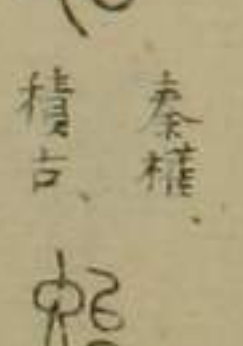 秦權、
積古、